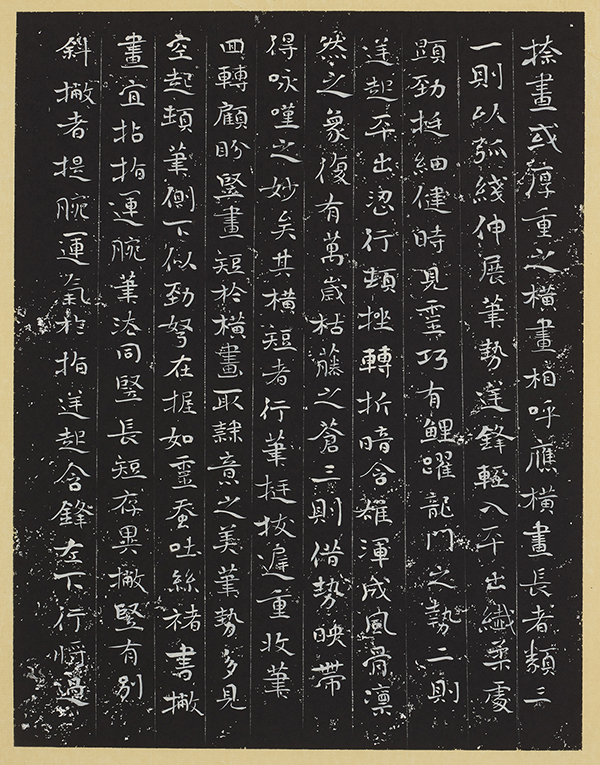 捺畫或厚重之橫畫相呼應橫畫長者類三
一則以弧綫伸展筆勢逆鋒輕入平出纖柔處
顯勁挺細健時見靈巧有鯉躍龍門之勢二則
逆起平出澀行頓挫轉折暗含雄渾成風骨凛
然之象復有萬歲枯藤之蒼三則借勢映帶
得咏嘆之妙矣其橫短者行筆挺拔遲重收筆
回轉顧盼竪畫短於橫畫取隸意之美筆勢多見
空起頓筆側下似勁弩在握如靈蚕吐絲褚書撇
畫宜拈指運腕筆法同竪長短存異撇竪有別
斜撇者提腕運氣於指逆起含鋒左下行將過